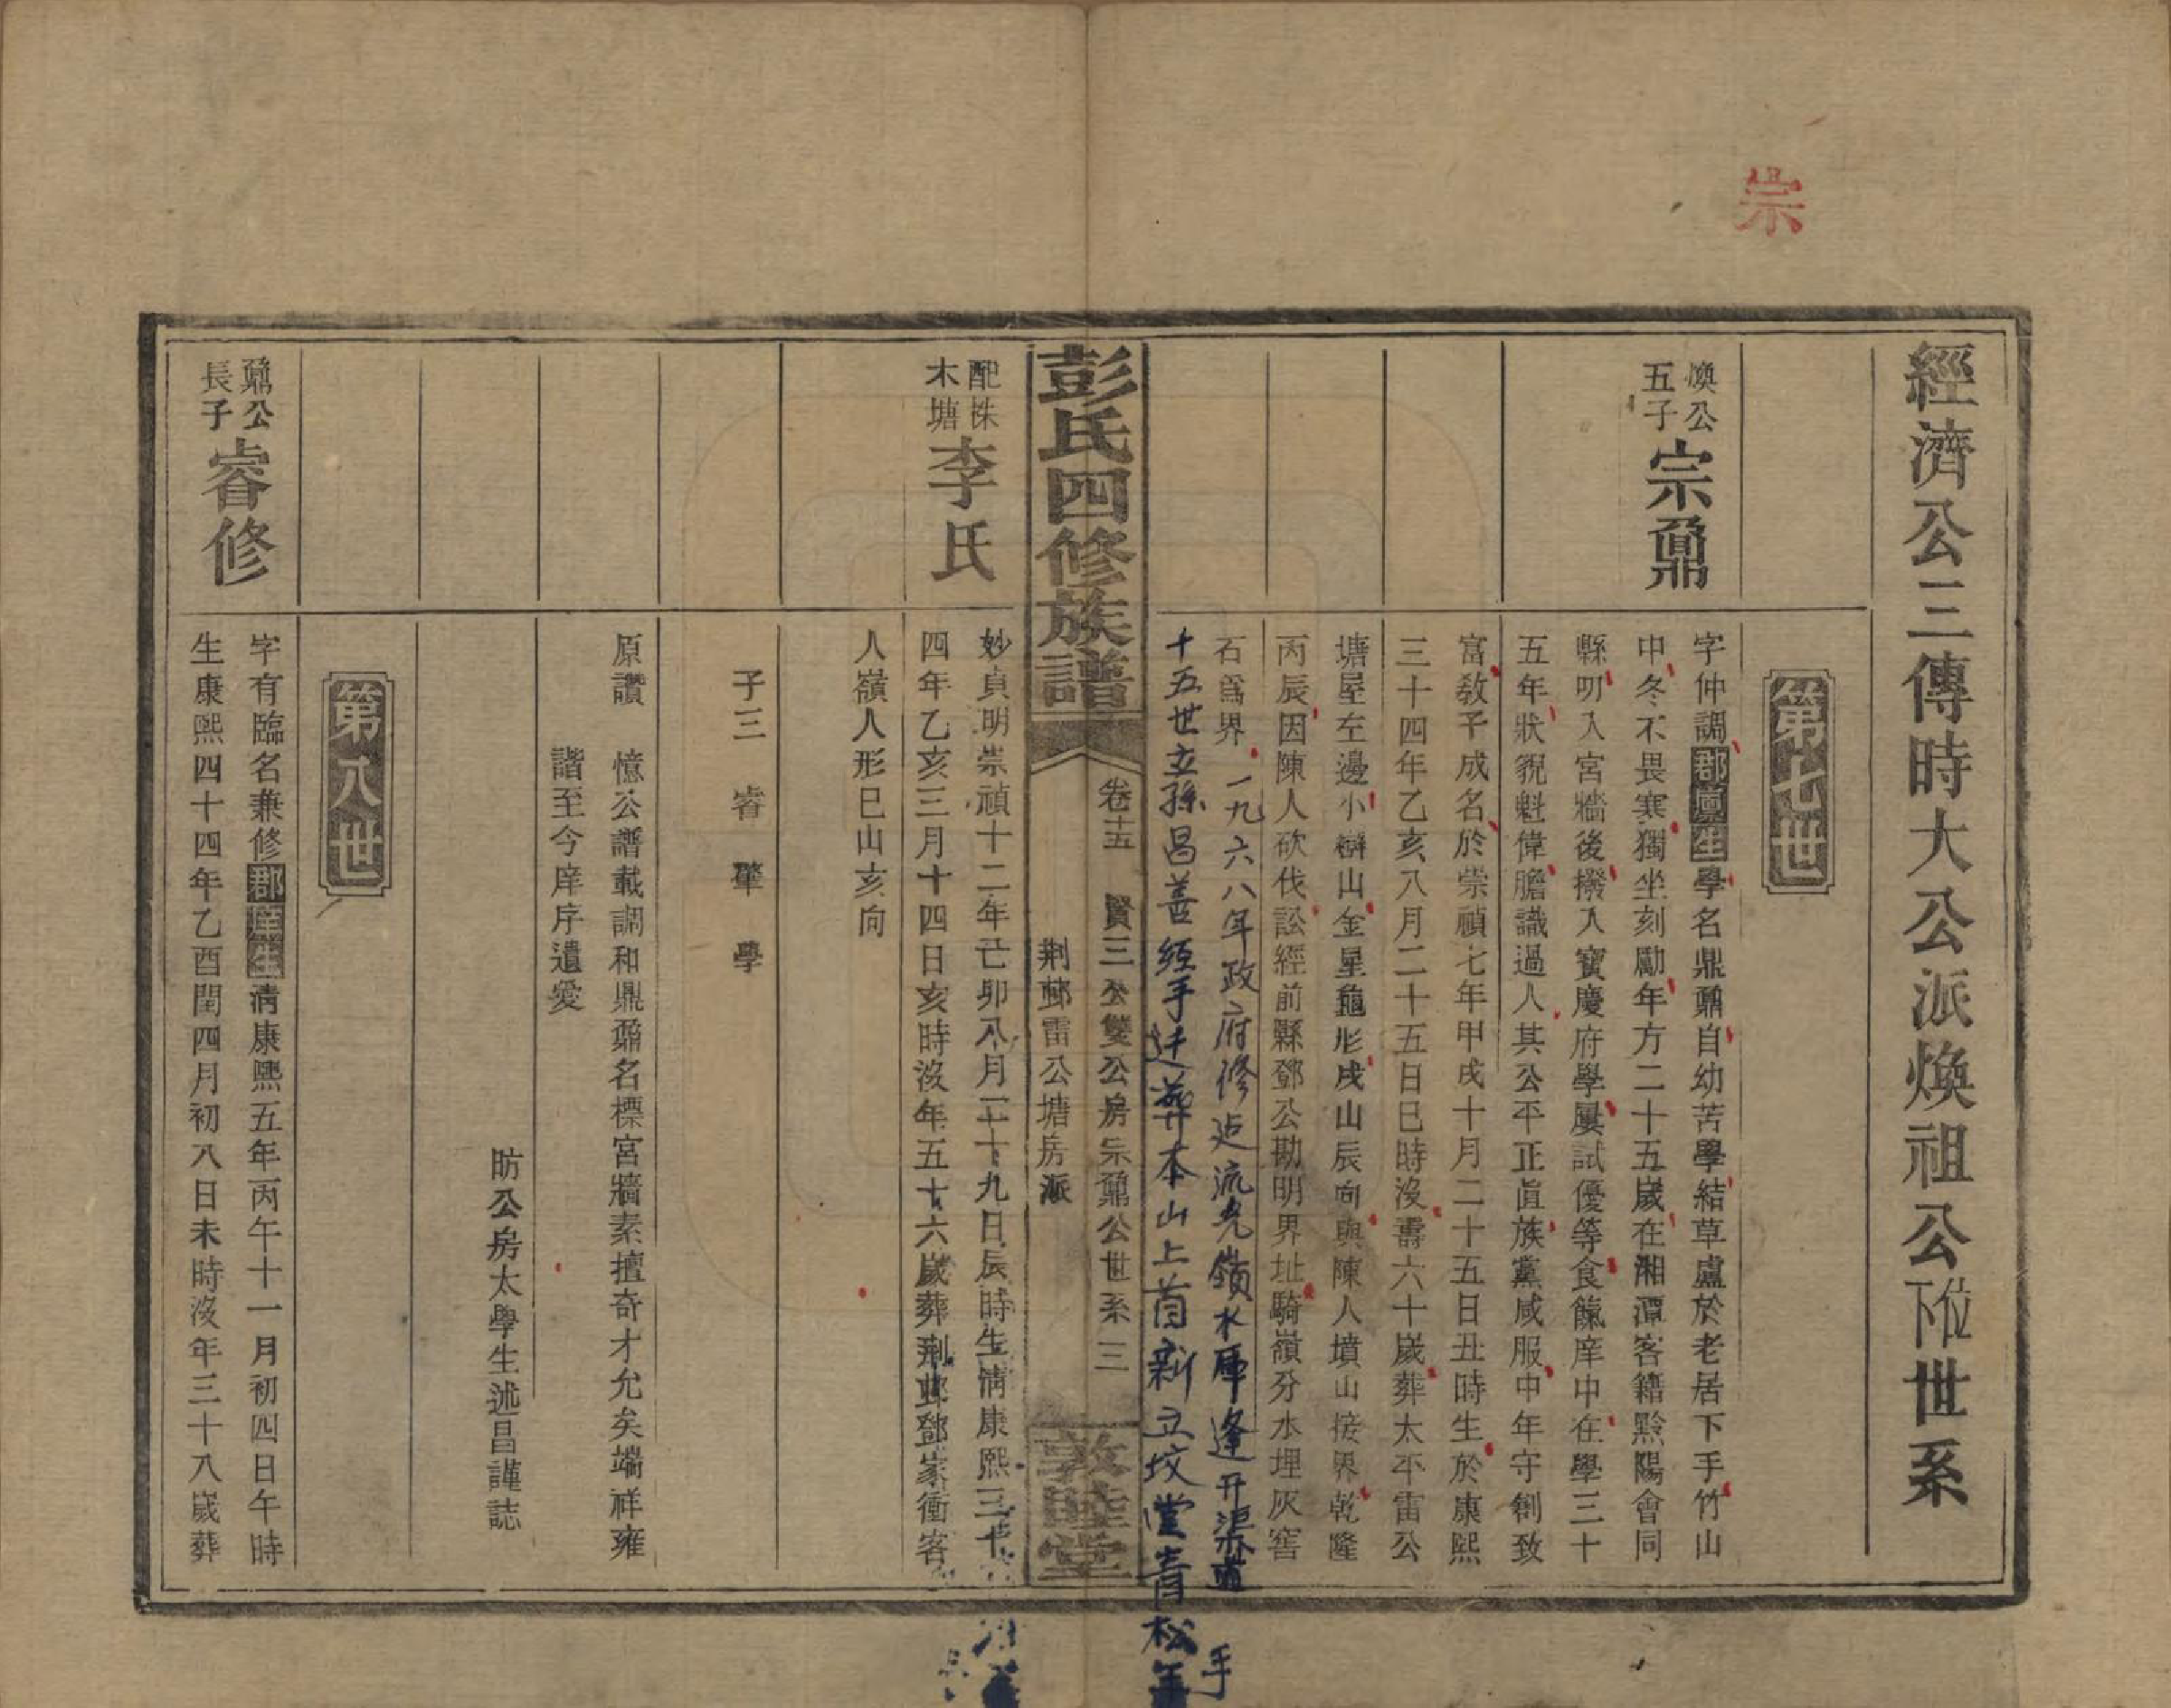 宗
經濟公三傳時大公派煥祖公位下世系
第七世
煥公五子
宗鼐
字仲調郡廩生學名鼎鼐自幼苦學結草盧於老居下手竹山
中冬不畏寒獨坐刻勵年方二十五歲在湘潭客籍黔陽會同
縣叨入宮牆後撥入寶慶府學屢試優等食餼庠中在學三十
五年狀貌魁偉膽識過人其公平正眞族黨咸服中年守創致
富敎子成名於崇禎七年甲戌十月二十五日丑時生於康熙
三十四年乙亥八月二十五日巳時沒壽六十歲葬太平雷公
塘屋左邊小山金星龜形戌山辰向與陳人墳山接界乾隆
丙辰因陳人砍伐訟經前縣鄧公勘明界址騎嶺分水埋灰窖
石爲界
一九六八年政府修造流光嶺水庫逢开渠道
十五世立孫昌善經手迁葬本山上首新立坟堂青松年
手
彭氏四修族譜
卷十五 賢三公雙公房宗鼐公世系 三
荆邨雷公塘房派
敦睦堂
配株木塘
李氏
妙貞明崇禎十二年己卯八月二十九日辰時生淸康熙三十
四年乙亥三月十四日亥時沒年五十六歲葬荆邨鄧家衝客
人嶺人形巳山亥向
子三 睿 肇 學
原讚 憶公譜載調和鼎鼐名標宮牆素擅奇才允矣端祥雍
諧至今庠序遺愛
昉公房太學生述昌謹誌
第八世
鼐公長子
睿修
字有臨名兼修郡庠生淸康熙五年丙午十一月初四日午時
生康熙四十四年乙酉閏四月初八日未時沒年三十八歲葬